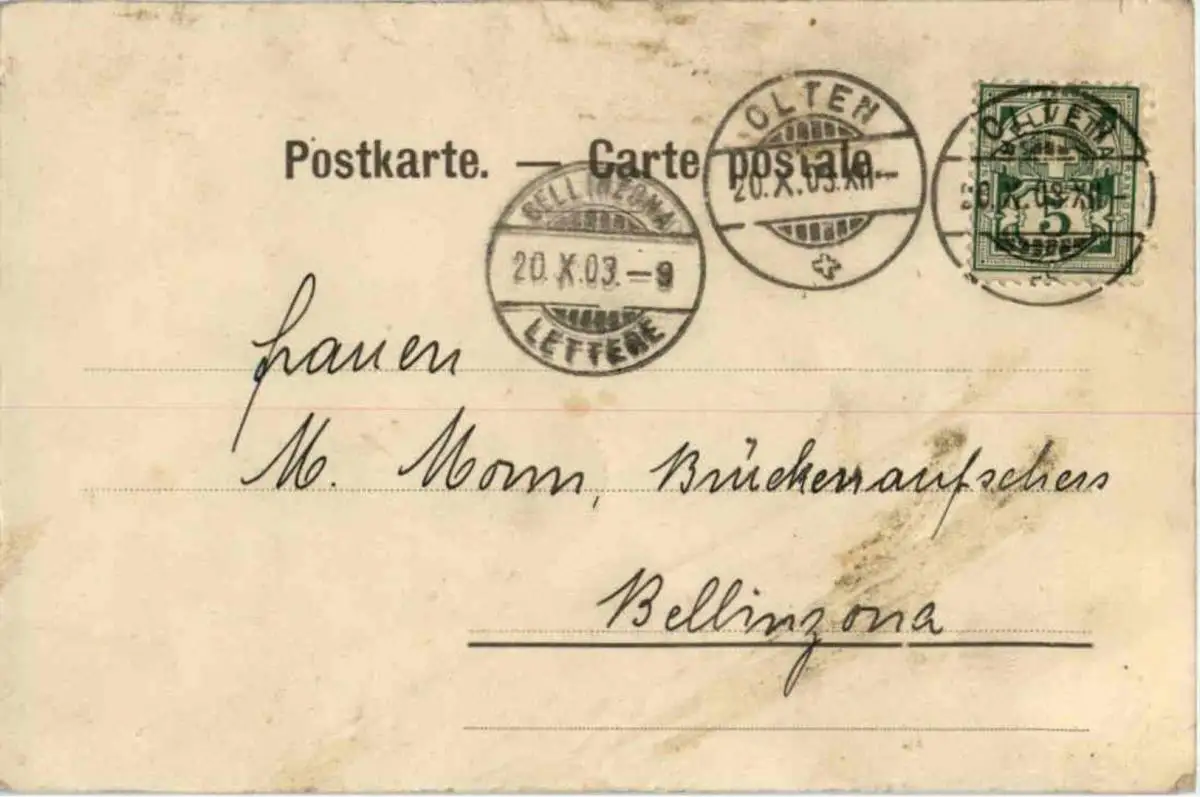 Postkarte. — Carte postale.
OLTEN
20.X.03.XII–
OLTEN
20.X.03.XII–
HELVETIA
5
BELLINZONA
20.X.03.–9
LETTERE
Frauen
M. Monn, Brückenaufsehers
Bellinzona